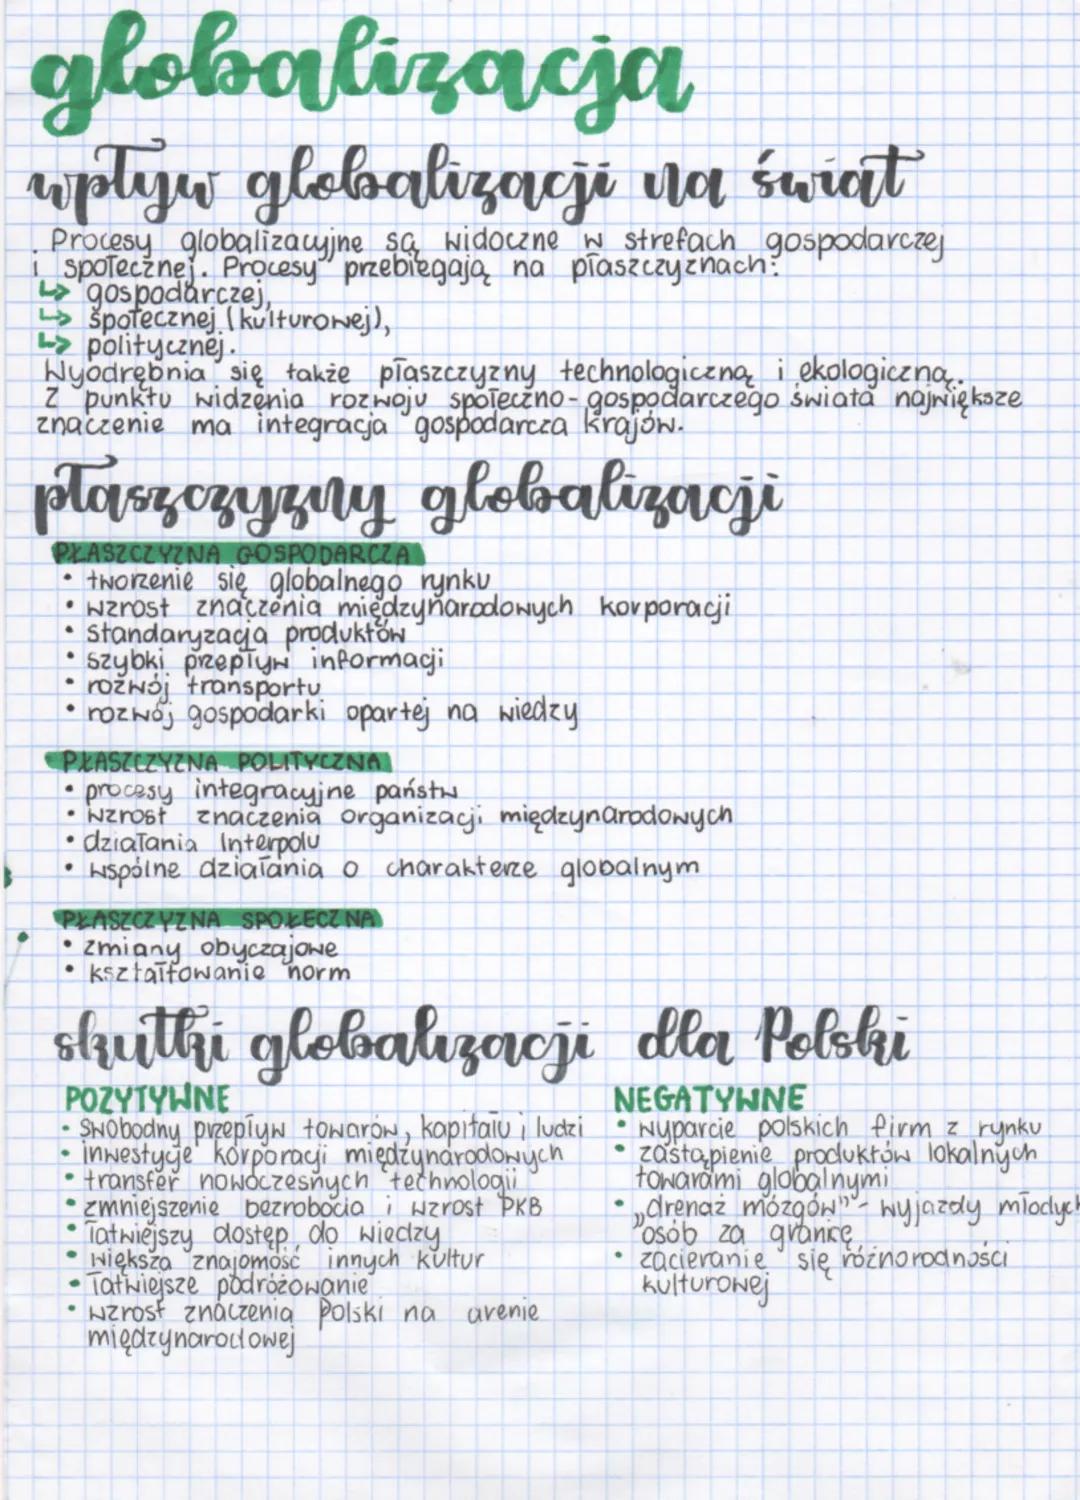 globalizacja
wpływ globalizacji na świat
Procesy globalizacyjne są widoczne w strefach gospodarczej
i społecznej. Procesy przebiegają na płaszczyznach:
↳ gospodarczej,
↳ społecznej (kulturowej),
↳ politycznej.
Wyodrębnia się także płaszczyzny technologiczną i ekologiczną.
Z punktu widzenia rozwoju społeczno-gospodarczego świata największe
znaczenie ma integracja gospodarcza krajów.
płaszczyzny globalizacji
PŁASZCZYZNA GOSPODARCZA
• tworzenie się globalnego rynku
• wzrost znaczenia międzynarodowych korporacji
• standaryzacja produktów
• szybki przepływ informacji
• rozwój transportu
• rozwój gospodarki opartej na wiedzy
PŁASZCZYZNA POLITYCZNA
• procesy integracyjne państw
• wzrost znaczenia organizacji międzynarodowych
• działania Interpolu
• wspólne działania o charakterze globalnym
PŁASZCZYZNA SPOŁECZNA
• zmiany obyczajowe
• kształtowanie norm
skutki globalizacji dla Polski
POZYTYWNE
• swobodny przepływ towarów, kapitału i ludzi
• inwestycje korporacji międzynarodowych
• transfer nowoczesnych technologii
• zmniejszenie bezrobocia i wzrost PKB
• łatwiejszy dostęp do wiedzy
• większa znajomość innych kultur
• łatwiejsze podróżowanie
• wzrost znaczenia Polski na arenie
międzynarodowej
NEGATYWNE
• wyparcie polskich firm z rynku
• zastąpienie produktów lokalnych
towarami globalnymi
• „drenaż mózgów" - wyjazdy młodych
osób za granicę
• zacieranie się różnorodności
kulturowej